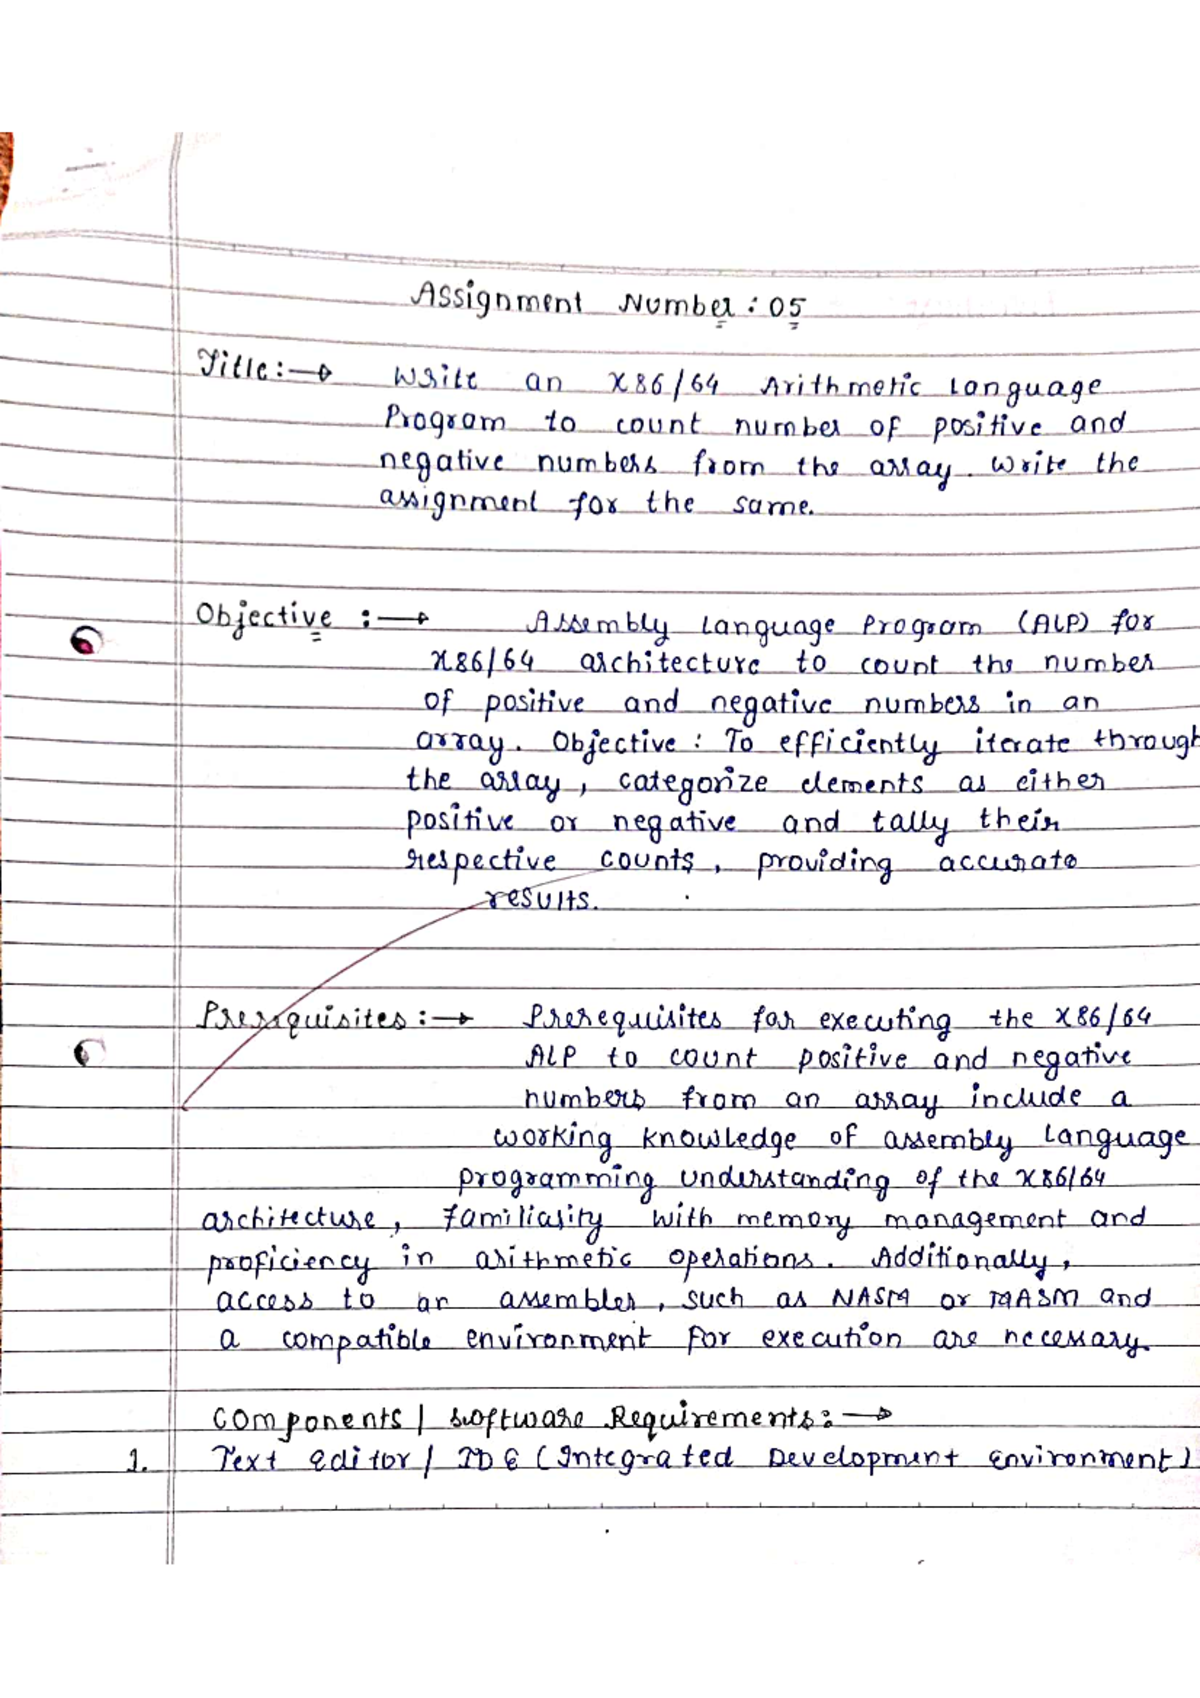 Assignment Number : 05
Title :→ Write an X86/64 Arithmetic Language
Program to count number of positive and
negative numbers from the array. Write the
assignment for the same.
Objective :→ Assembly Language Program (ALP) for
X86/64 architecture to count the number
of positive and negative numbers in an
array. Objective : To efficiently iterate through
the array, categorize elements as either
positive or negative and tally their
respective counts, providing accurate
results.
Prerequisites :→ Prerequisites for executing the X86/64
ALP to count positive and negative
numbers from an array include a
working knowledge of assembly Language
programming understanding of the X86/64
architecture, familiarity with memory management and
proficiency in arithmetic operations. Additionally,
access to an assembler, such as NASM or MASM and
a compatible environment for execution are necessary.
Components / Software Requirements :→
1. Text Editor / IDE (Integrated Development Environment)